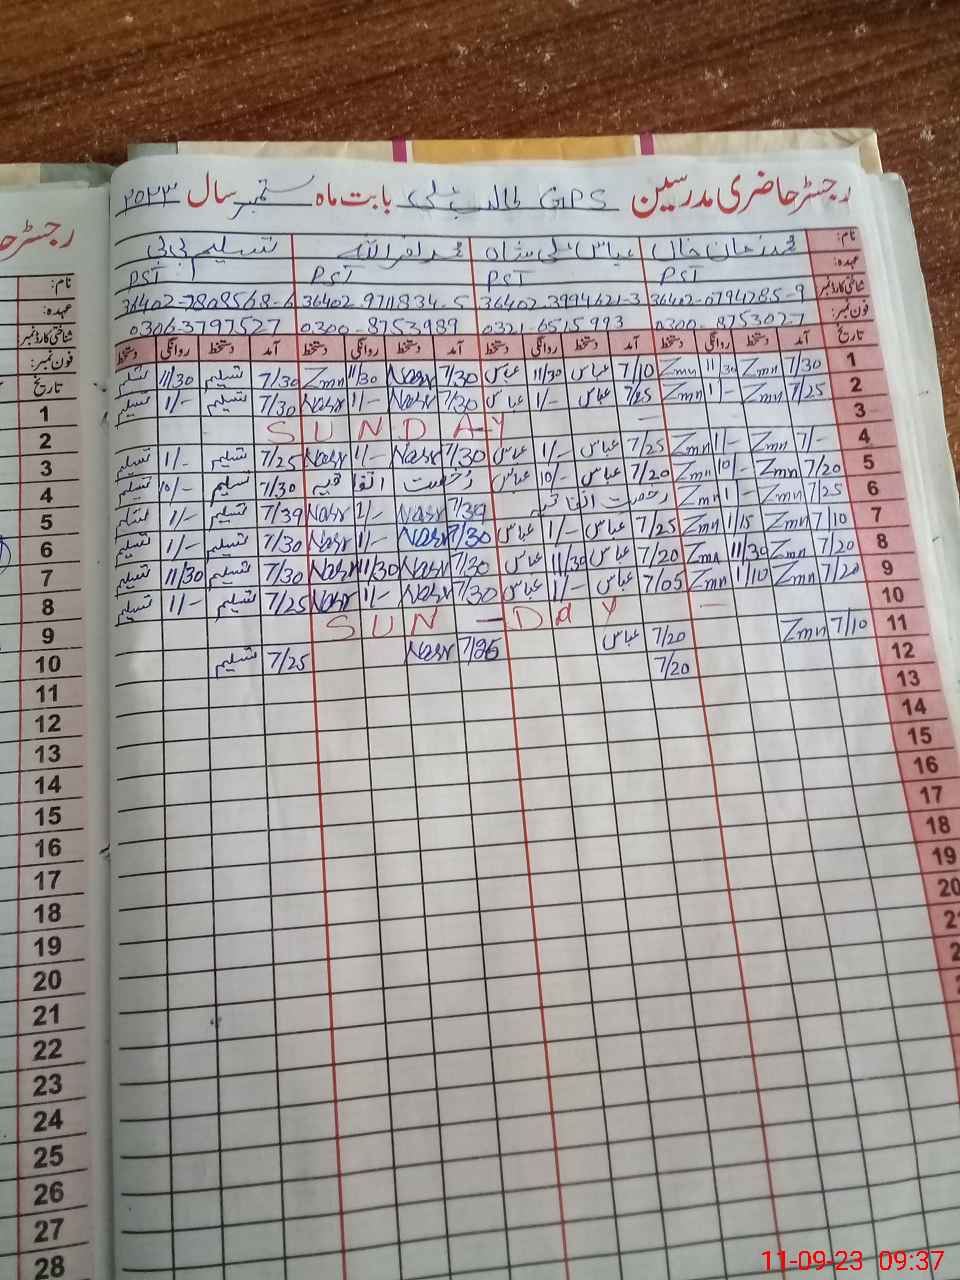 رجسٹر حاضری مدرسین GPS طالب علی بابت ماہ ستمبر سال ۲۰۲۳
نام: محمد زمان خان عباس علی شاہ محمد نصر اللہ تسلیم بی بی
عہدہ: PST PST PST PST
شناختی کارڈ نمبر 36402-0794285-9 36402-3994621-3 36402-9711834-5 36402-7808568-6
فون نمبر: 0300-8753027 0321-6515993 0300-8753989 0306-3797527
تاریخ آمد دستخط روانگی دستخط آمد دستخط روانگی دستخط آمد دستخط روانگی دستخط آمد دستخط روانگی دستخط
1 7/30 Zmn 11/30 Zmn 7/10 عباس 11/30 عباس 7/30 Nasr 11/30 Zmn 7/30 تسلیم 11/30 تسلیم
2 7/25 Zmn 1/- Zmn 7/25 عباس 1/- عباس 7/30 Nasr 1/- Nasr 7/30 تسلیم 1/- تسلیم
3 SUNDAY
4 7/- Zmn 1/- Zmn 7/25 عباس 1/- عباس 7/30 Nasr 1/- Nasr 7/25 تسلیم 1/- تسلیم
5 7/20 Zmn 10/- Zmn 7/20 عباس 10/- عباس رخصت اتفاقیہ 7/30 تسلیم 10/- تسلیم
6 7/25 Zmn 1/- Zmn رخصت اتفاقیہ 7/30 Nasr 1/- Nasr 7/30 تسلیم 1/- تسلیم
7 7/10 Zmn 1/15 Zmn 7/25 عباس 1/- عباس 7/30 Nasr 1/- Nasr 7/30 تسلیم 1/- تسلیم
8 7/20 Zmn 11/30 Zmn 7/20 عباس 11/30 عباس 7/30 Nasr 11/30 Nasr 7/30 تسلیم 11/30 تسلیم
9 7/20 Zmn 1/10 Zmn 7/05 عباس 1/- عباس 7/30 Nasr 1/- Nasr 7/25 تسلیم 1/- تسلیم
10 SUN - DAY
11 7/10 Zmn 7/20 عباس 7/25 Nasr 7/25 تسلیم
12 7/20
13
14
15
16
17
18
19
20
رجسٹر حا
نام:
عہدہ:
شناختی کارڈ نمبر
فون نمبر:
تاریخ
1
2
3
4
5
6
7
8
9
10
11
12
13
14
15
16
17
18
19
20
21
22
23
24
25
26
27
28
11-09-23 09:37